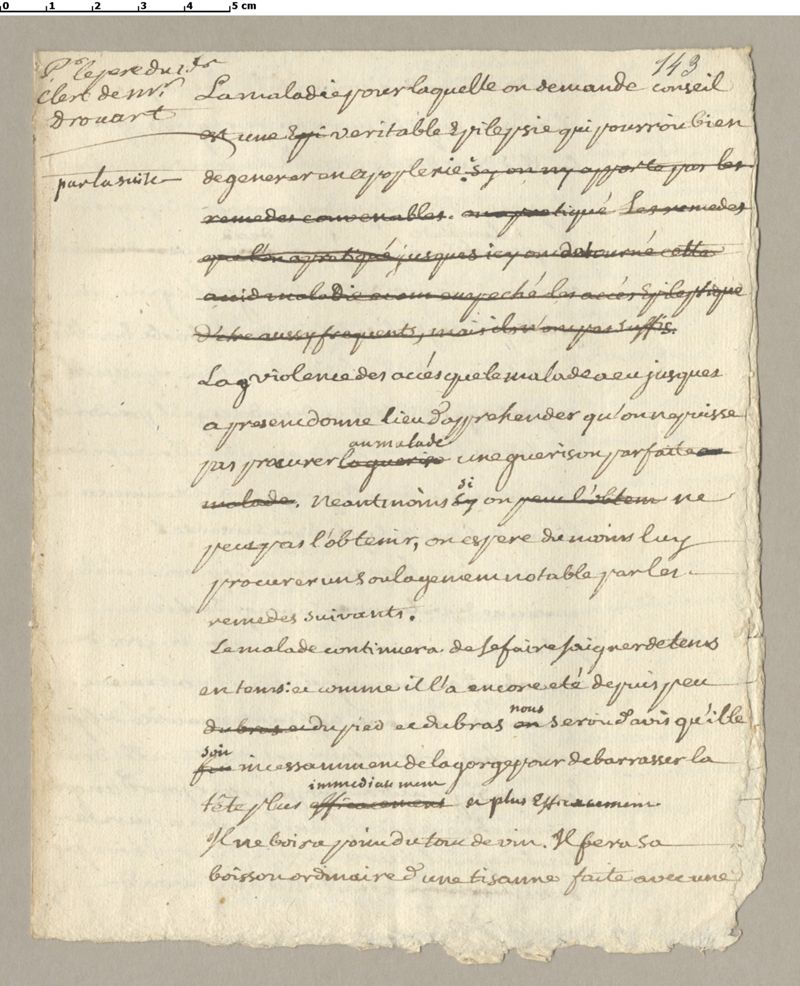 0 1 2 3 4 5 cm
143
Pr le pere du Sr
Clerc de mr
Drouart
La maladie pour laquelle on demande conseil
est une Epi veritable Epilepsie qui pourroit bien
par la suite
degenerer en apoplexie, sy on ny apporte pas les
remedes convenables. on a pratiqué Les remedes
que l'on a pratiqué jusques icy ont detourné cette
maladie et ont empeché les accés Epileptique
d'etre aussy frequents, mais ils n'ont pas suffis.
La violence des accés que le malade a eu jusques
a present donne lieu d'apprehender qu'on ne puisse
au malade
pas procurer la guerise une guerison parfaite au
si
malade. Neantmoins sy on peut l'obtenir ne
peut pas l'obtenir, on espere du moins luy
procurer un Soulagement notable par les
remedes suivants.
Le malade continuera de se faire saigner de tems
en tems: et comme il l'a encore eté depuis peu
nous
du bras et du pied et du bras on seroit d'avis qu'il le
soit
fut incessamment de la gorge pour debarrasser la
immediatement
tête plus efficacement et plus Efficasement
Il ne boira point du tout de vin. Il fera sa
boisson ordinaire d'une tisanne faite avec une